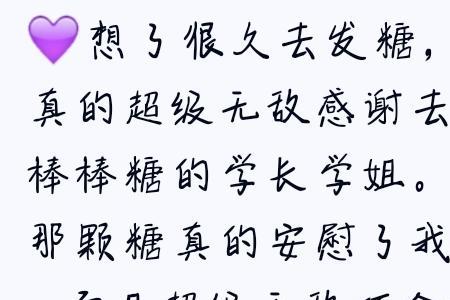 💜想了很久去发糖，
真的超级无敌感谢去
棒棒糖的学长学姐。
那颗糖真的安慰了我